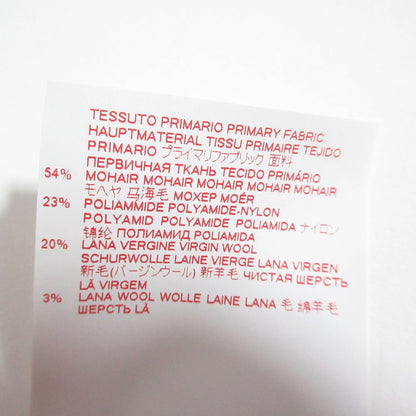 TESSUTO PRIMARIO PRIMARY FABRIC
HAUPTMATERIAL TISSU PRIMAIRE TEJIDO
PRIMARIO プライマリファブリック 面料
ПЕРВИЧНАЯ ТКАНЬ TECIDO PRIMÁRIO
54% MOHAIR MOHAIR MOHAIR MOHAIR MOHAIR
モヘヤ 马海毛 МОХЕР MOÉR
23% POLIAMMIDE POLYAMIDE-NYLON
POLYAMID POLYAMIDE POLIAMIDA ナイロン
锦纶 ПОЛИАМИД POLIAMIDA
20% LANA VERGINE VIRGIN WOOL
SCHURWOLLE LAINE VIERGE LANA VIRGEN
新毛(バージンウール) 新羊毛 ЧИСТАЯ ШЕРСТЬ
LÃ VIRGEM
3% LANA WOOL WOLLE LAINE LANA 毛 綿羊毛
ШЕРСТЬ LÃ